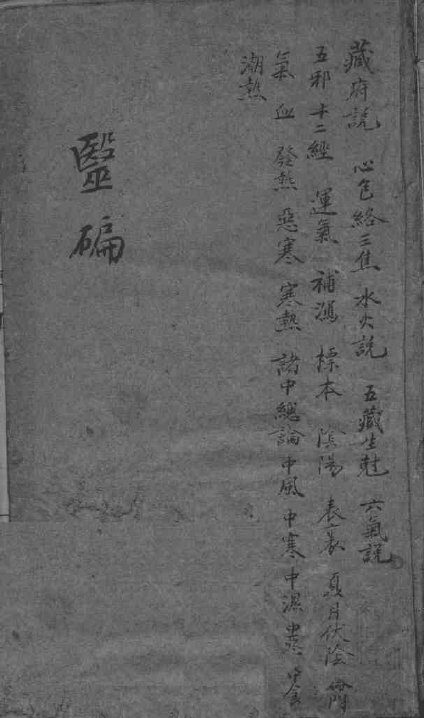 藏府說 心包絡三焦 水火說 五藏生尅 六氣說
五邪 十二經 運氣 補瀉 標本 陰陽 表裏 夏月伏陰
氣 血 發熱 惡寒 寒熱 諸中總論 中風 中寒 中濕
潮熱
毉碥